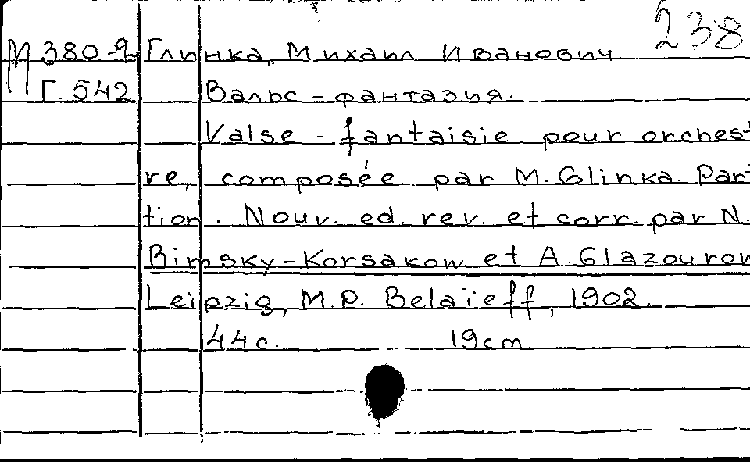 238
М 380-2 Глинка, Михаил Иванович
Г 542 Вальс-фантазия.
Valse-fantaisie pour orchest
re, composée par M. Glinka. Part
tion. Nouv. ed. rev. et corr. par N.
Rimsky-Korsakow et A Glazounow
Leipzig, M.P. Belaïeff, 1902.
44с. 19cm